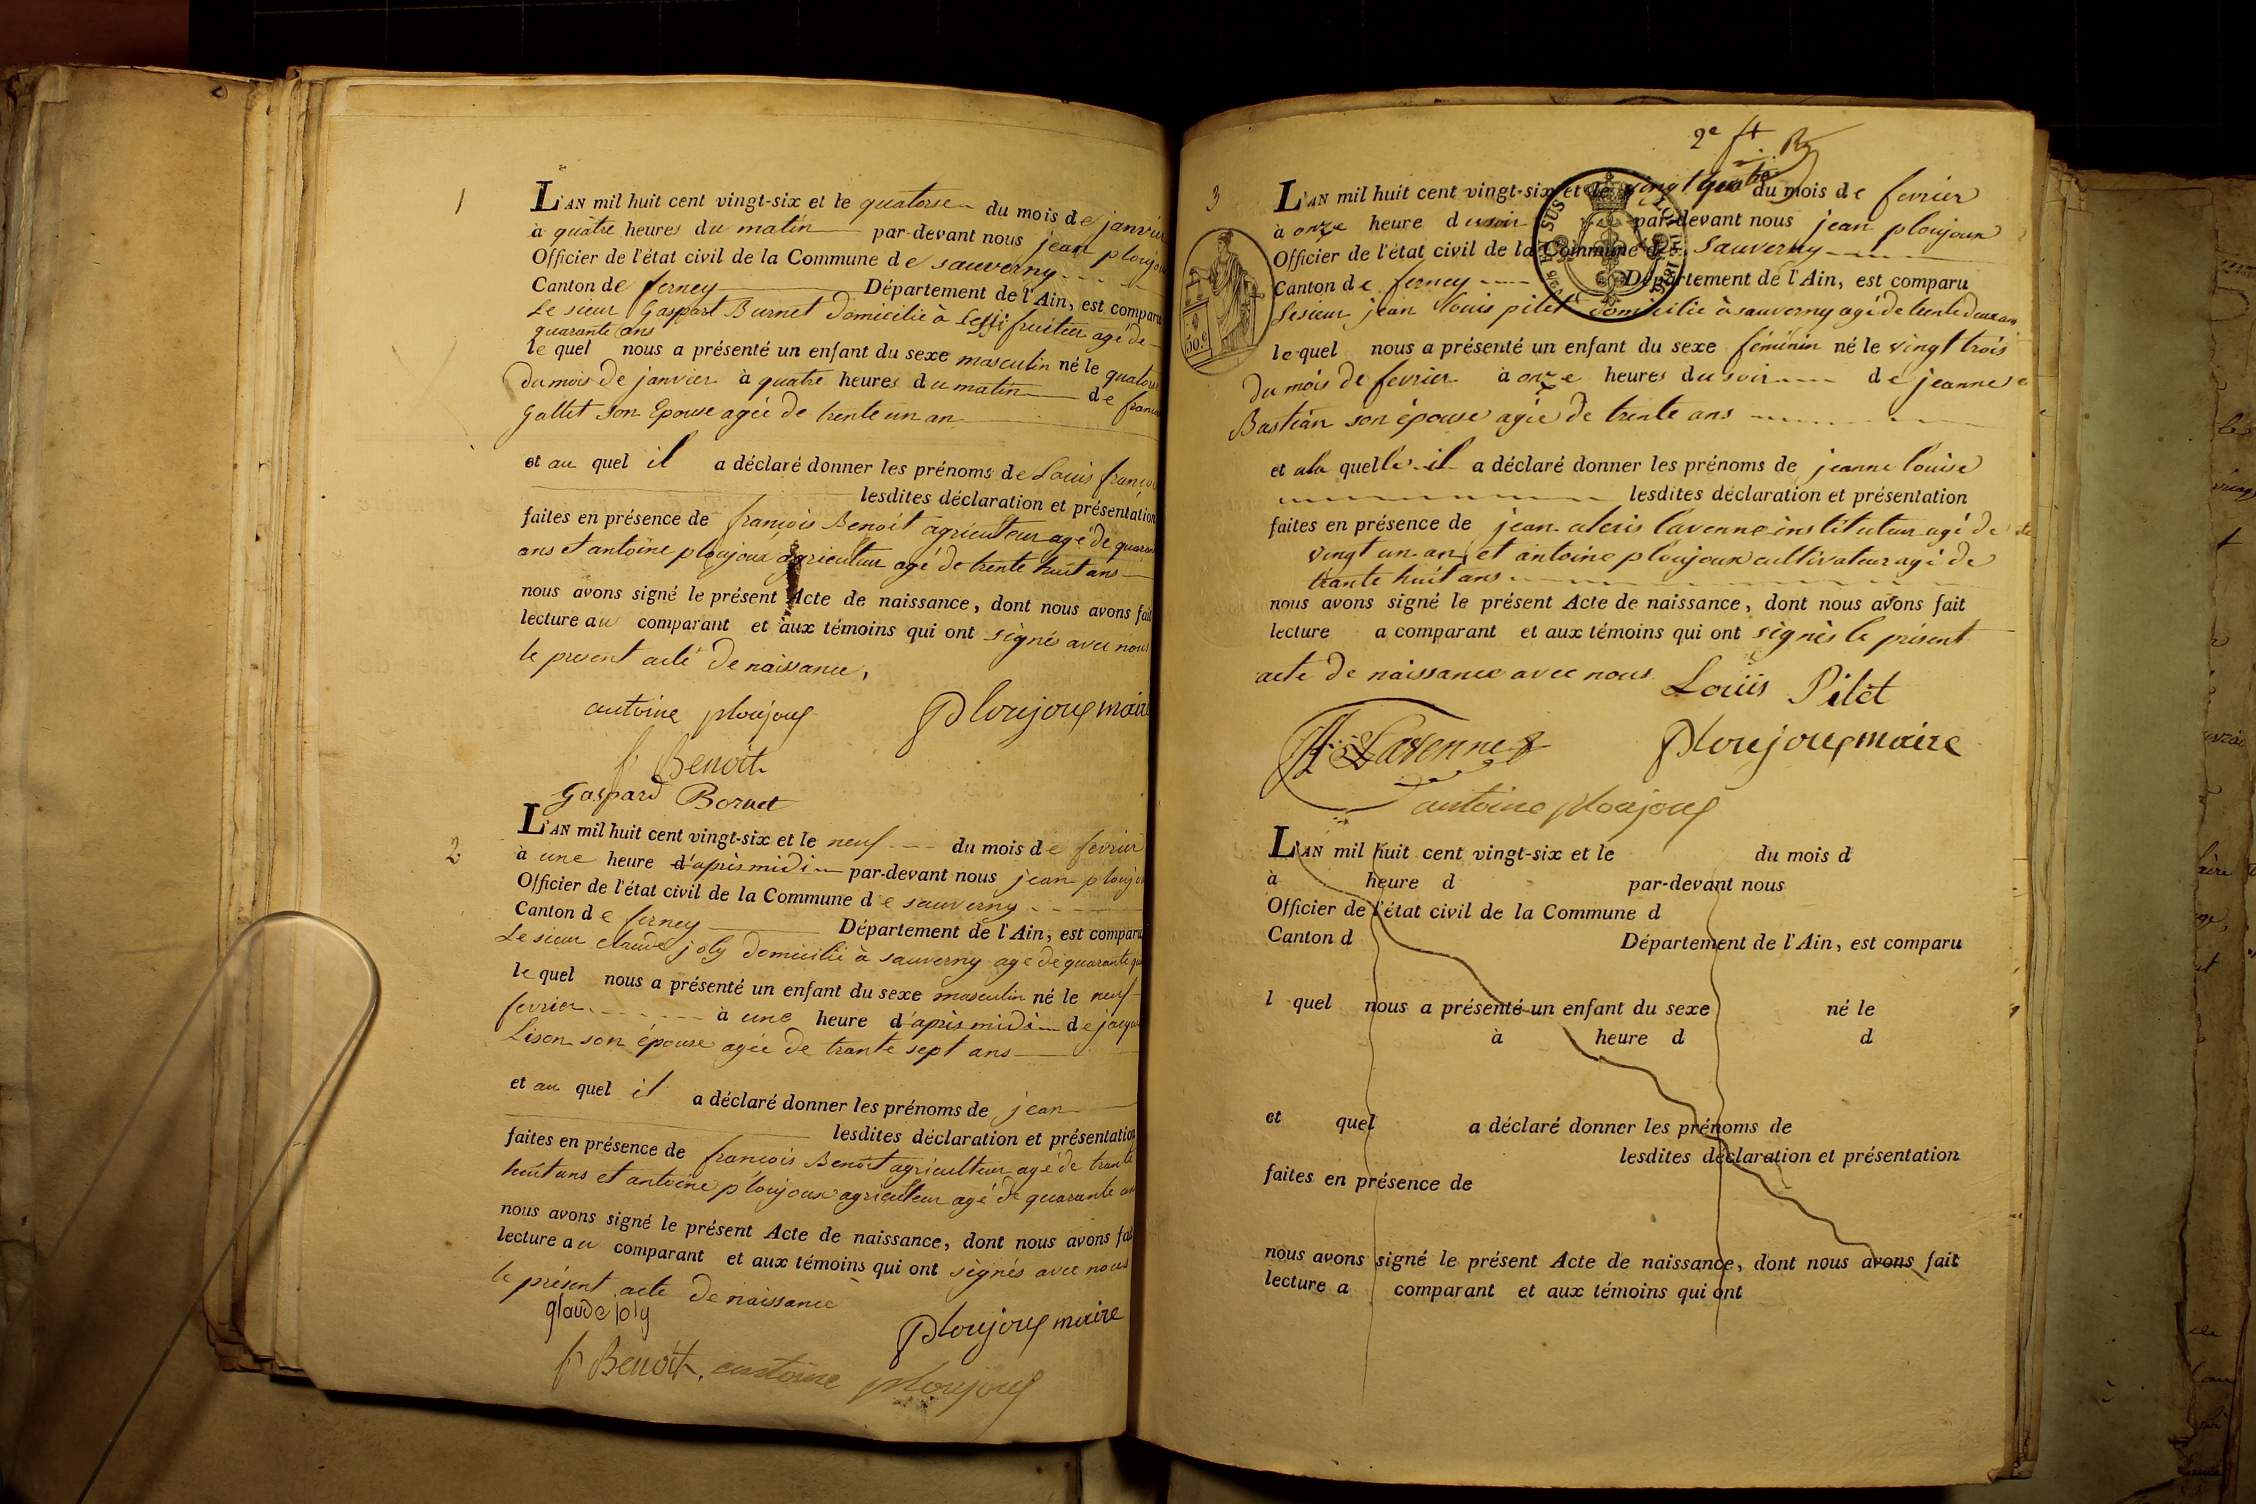 1
L'AN mil huit cent vingt-six et le quatorse du mois de janvier
à quatre heures du matin par-devant nous jean ploujoux
Officier de l'état civil de la Commune de sauverny
Canton de ferney Département de l'Ain, est comparu
Le sieur Gaspart Burnet Domicilié à fruitier agé de
quarante ans
le quel nous a présenté un enfant du sexe masculin né le quatorse
du mois de janvier à quatre heures du matin de
Gallet son Epouse agée de trente un an
et au quel il a déclaré donner les prénoms de Louis françois
lesdites déclaration et présentation
faites en présence de francois Benoit agriculteur agé de
ans et antoine ploujoux agriculteur agé de trente huit ans
nous avons signé le présent Acte de naissance, dont nous avons fait
lecture au comparant et aux témoins qui ont signés avec nous
le present acte de naissance,
antoine ploujoux Ploujoux maire
f Benoit
Gaspard Bornet
2
L'AN mil huit cent vingt-six et le neuf du mois de fevrier
à une heure d'après midi par-devant nous jean ploujoux
Officier de l'état civil de la Commune de sauverny
Canton de ferney Département de l'Ain, est comparu
Le sieur claude joly domicilié à sauverny agé de quarante
le quel nous a présenté un enfant du sexe masculin né le neuf
fevrier à une heure d'apris midi de
Lison son épouse agée de trante sept ans
et au quel il a déclaré donner les prénoms de jean
lesdites déclaration et présentation
faites en présence de francois Benoit agriculteur agé de trante
huit ans et antoine ploujoux agriculteur agé de quarante ans
nous avons signé le présent Acte de naissance, dont nous avons fait
lecture au comparant et aux témoins qui ont signés avec nous
le présent acte de naissance
glaude joly Ploujoux maire
f Benoit. antoine ploujoux
2e ft
3
L'AN mil huit cent vingt-six et le vingt quatre du mois de fevrier
à onze heure du soir par-devant nous jean ploujoux
Officier de l'état civil de la Commune de sauverny
Canton de ferney Département de l'Ain, est comparu
Le sieur jean louis pilet domicilié à sauverny agé de trente deux ans
50 c
le quel nous a présenté un enfant du sexe féminin né le vingt trois
du mois de fevrier à onze heures du soir de jeanne
Bastian son épouse agée de trente ans
et a la quelle il a déclaré donner les prénoms de jeanne louise
lesdites déclaration et présentation
faites en présence de jean alexis lavenne instituteur agé de
vingt un an et antoine ploujoux cultivateur agé de
trante huit ans
nous avons signé le présent Acte de naissance, dont nous avons fait
lecture a comparant et aux témoins qui ont signès le présent
acte de naissance avec nous
Louis Pilet
Lavenne Ploujoux maire
antoine ploujoux
L'AN mil huit cent vingt-six et le du mois d
à heure d par-devant nous
Officier de l'état civil de la Commune d
Canton d Département de l'Ain, est comparu
l quel nous a présenté un enfant du sexe né le
à heure d d
et quel a déclaré donner les prénoms de
lesdites déclaration et présentation
faites en présence de
nous avons signé le présent Acte de naissance, dont nous avons fait
lecture a comparant et aux témoins qui ont